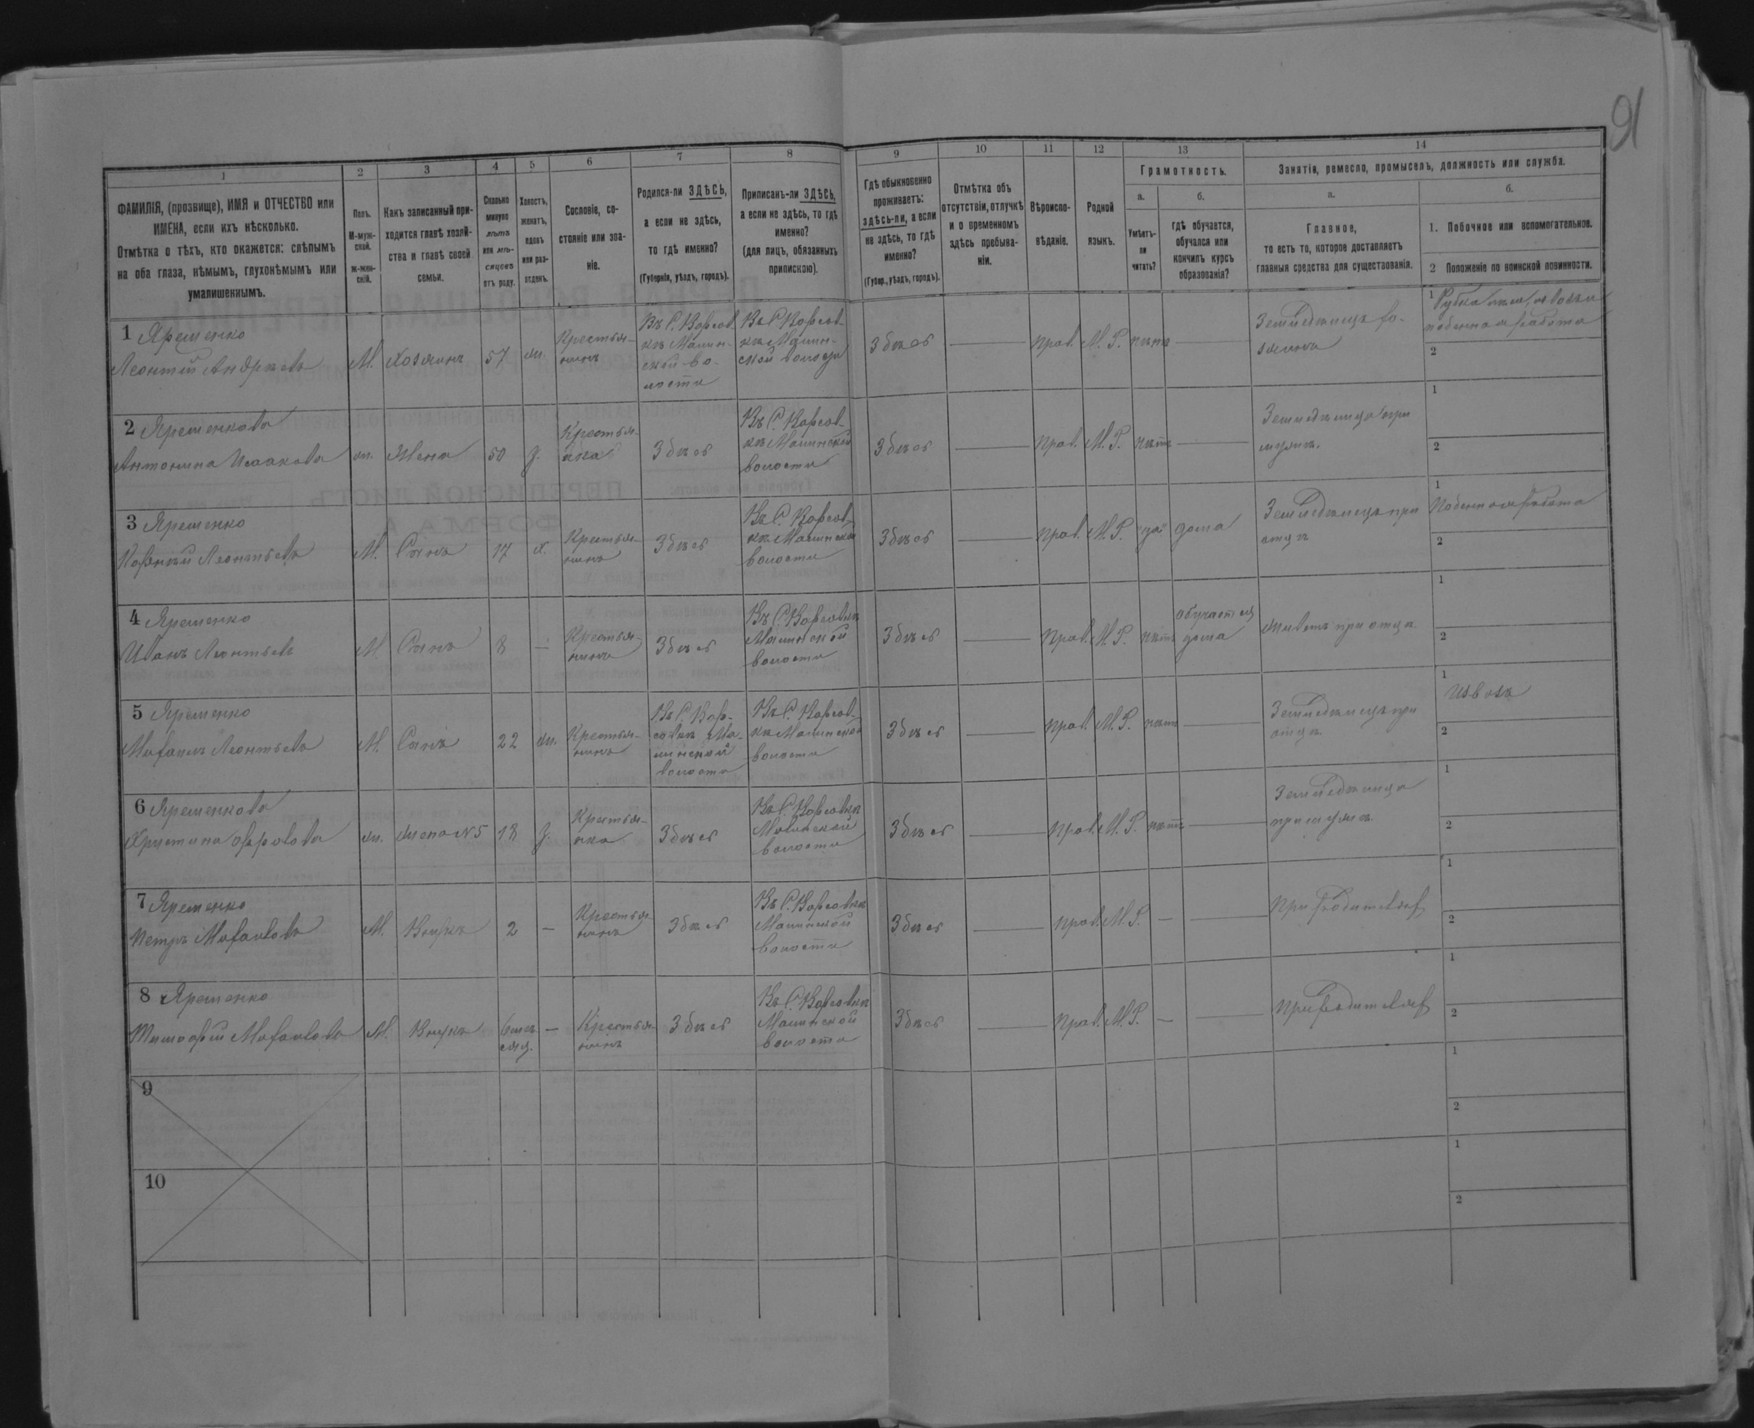 91
1 2 3 4 5 6 7 8 9 10 11 12 13 14
ФАМИЛІЯ, (прозвище), ИМЯ и ОТЧЕСТВО или
ИМЕНА, если ихъ нѣсколько.
Отмѣтка о тѣхъ, кто окажется: слѣпымъ
на оба глаза, нѣмымъ, глухонѣмымъ или
умалишеннымъ.
Полъ.
М-муж-
ской.
ж-жен-
скій.
Какъ записанный при-
ходится главѣ хозяй-
ства и главѣ своей
семьи.
Сколько
минуло
лѣтъ
или мѣ-
сяцевъ
отъ роду.
Холостъ,
женатъ,
вдовъ
или раз-
веденъ.
Сословіе, со-
стояніе или зва-
ніе.
Родился-ли ЗДѢСЬ,
а если не здѣсь,
то гдѣ именно?
(Губернія, уѣздъ, городъ).
Приписанъ-ли ЗДѢСЬ,
а если не здѣсь, то гдѣ
именно?
(для лицъ, обязанныхъ
припискою).
Гдѣ обыкновенно
проживаетъ:
здѣсь-ли, а если
не здѣсь, то гдѣ
именно?
(Губер., уѣздъ, городъ).
Отмѣтка объ
отсутствіи, отлучкѣ
и о временномъ
здѣсь пребыва-
ніи.
Вѣроиспо-
вѣданіе.
Родной
языкъ.
Грамотность.
а.
Умѣетъ-
ли
читать?
б.
гдѣ обучается,
обучался или
кончилъ курсъ
образованія?
Занятія, ремесло, промыселъ, должность или служба.
а.
Главное,
то есть то, которое доставляетъ
главныя средства для существованія.
б.
1. Побочное или вспомогательное.
2 Положеніе по воинской повинности.
1 Ярешенко
Леонтій Андреевъ
М. Хозяинъ 57 ж.
Крестья-
нинъ
Въ С. Ворсов
кѣ Малин-
ской во-
лости
Въ С. Ворсов-
кѣ Малин-
ской волости
Здѣсь — Прав. М.Р. нѣтъ —
Земледѣлецъ хо-
зяинъ
1
2
2 Ярешенкова
Антонина Исаакова
ж. Жена 50 з.
Крестья-
нка
Здѣсь
Въ С. Ворсов-
кѣ Малинской
волости
Здѣсь — Прав. М.Р. нѣтъ —
Земледѣлица при
мужѣ.
1
2
3 Ярешенко
Леонтьевъ
М. Сынъ 17 х.
Крестья-
нинъ
Здѣсь
Въ С. Ворсов-
кѣ Малинской
волости
Здѣсь — Прав. М.Р. да дома
Земледѣлецъ при
отцѣ
1
2
4 Ярешенко
Иванъ Леонтьевъ
М. Сынъ 8 —
Крестья-
нинъ
Здѣсь
Въ С. Ворсовкѣ
Малинской
волости
Здѣсь — Прав. М.Р. нѣтъ
обучается
дома
живетъ при отцѣ
1
2
5 Ярешенко
Михаилъ Леонтьевъ
М. Сынъ 22 ж.
Крестья-
нинъ
Въ С. Вор-
совкѣ Ма-
линской
волости
Въ С. Ворсов-
кѣ Малинской
волости
Здѣсь — Прав. М.Р. нѣтъ —
Земледѣлецъ при
отцѣ
1 Извозъ
2
6 Ярешенкова
Христина
ж. жена №5 18 з.
Крестья-
нка
Здѣсь
Въ С. Ворсовкѣ
Малинской
волости
Здѣсь — Прав. М.Р. нѣтъ —
Земледѣлица
при мужѣ
1
2
7 Ярешенко
Петръ Михаиловъ
М. Внукъ 2 —
Крестья-
нинъ
Здѣсь
Въ С. Ворсовкѣ
Малинской
волости
Здѣсь — Прав. М.Р. — —
При родителяхъ
1
2
8 Ярешенко
Тимофей Михаиловъ
М. Внукъ 6 мѣ-
сяц. —
Крестья-
нинъ
Здѣсь
Въ С. Ворсовкѣ
Малинской
волости
Здѣсь — Прав. М.Р. — —
При родителяхъ
1
2
9
1
2
10
1
2